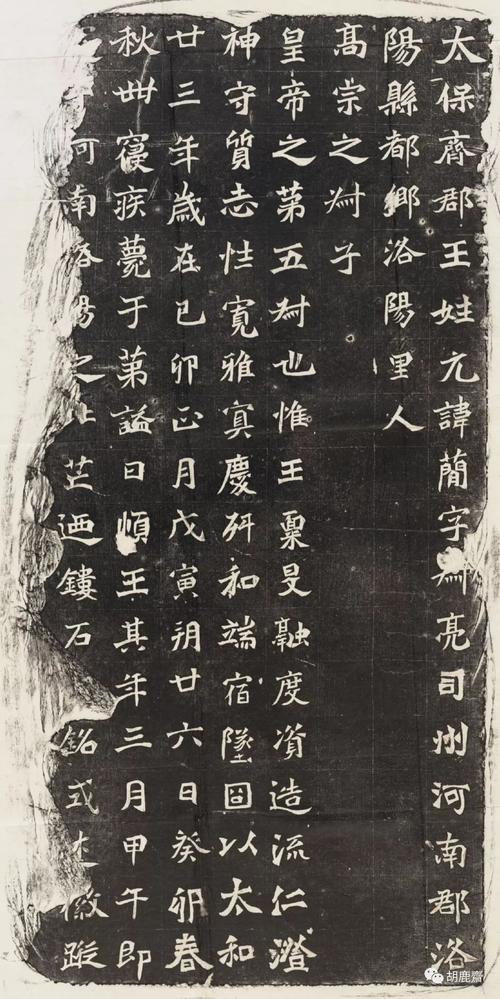 太保齊郡王姓元諱簡字叔亮司州河南郡洛
陽縣都鄉洛陽里人
高宗之叔子
皇帝之第五叔也惟王稟旻融度資造流仁澄
神守質志性寬雅冥慶舛和端宿墜固以太和
廿三年歲在己卯正月戊寅朔廿六日癸卯春
秋卌寢疾薨于第謚曰順王其年三月甲午即
于河南洛陽之北芒迺鏤石銘或述徽蹤
胡鹿齋